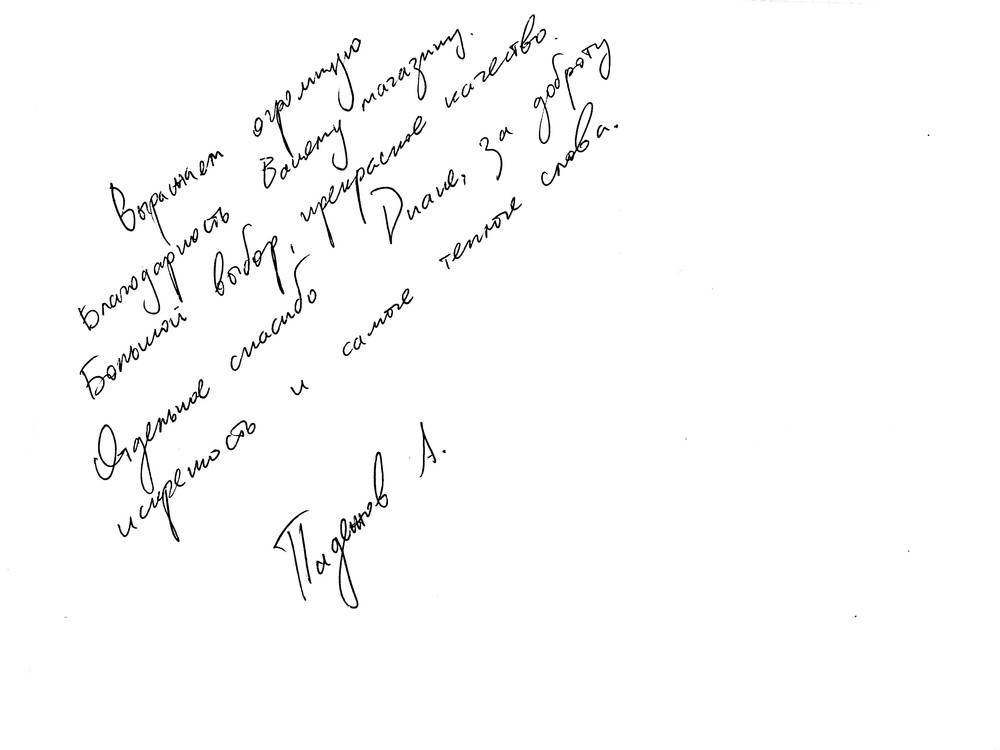 Выражаем огромную
Благодарность Вашему магазину.
Большой выбор, прекрасное качество.
Отдельное спасибо Диане, за доброту
искреность и самые теплые слова.
А.